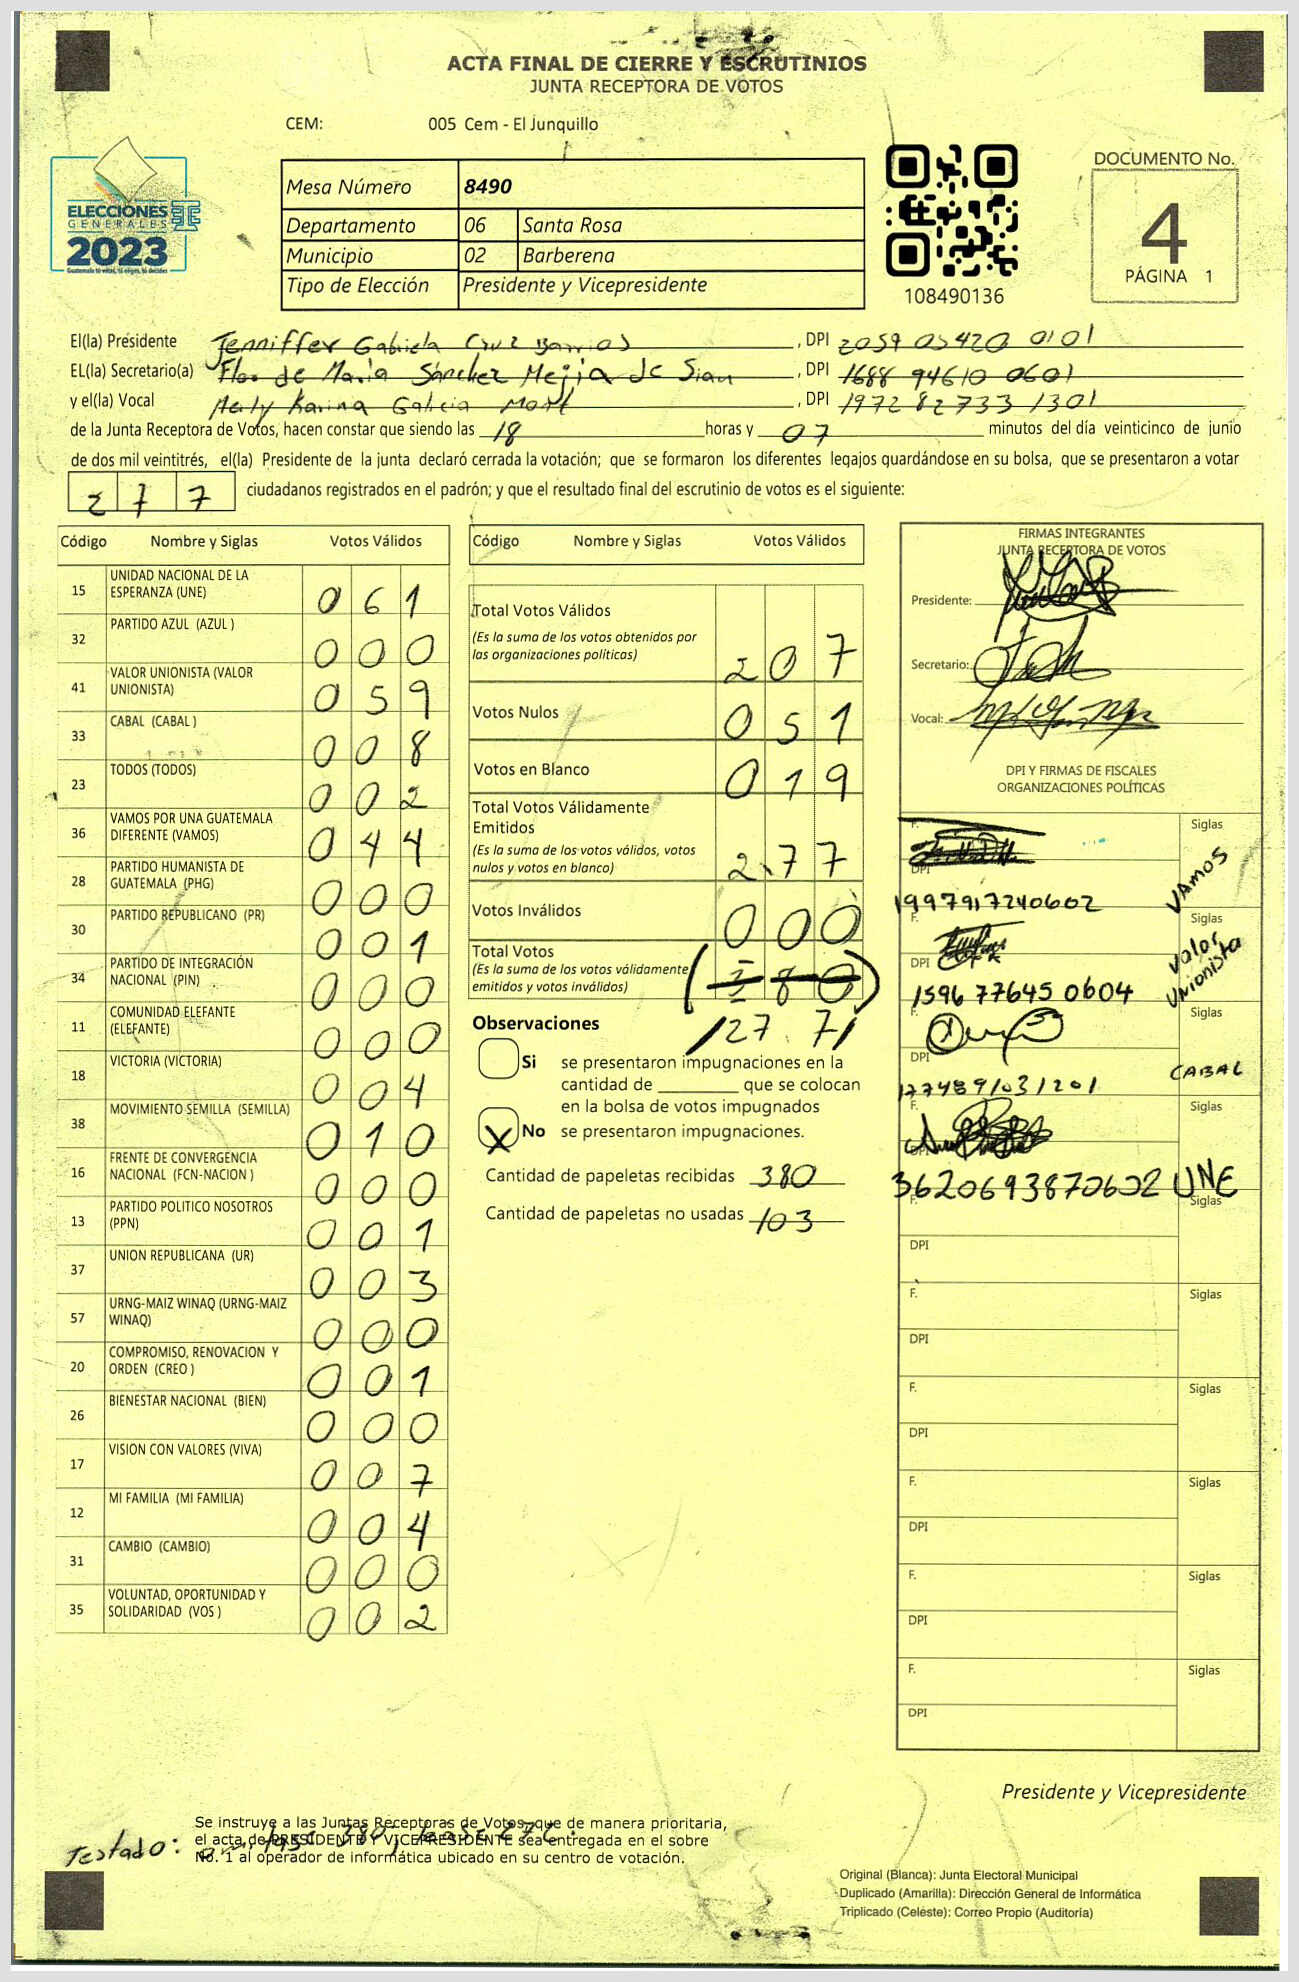 ACTA FINAL DE CIERRE Y ESCRUTINIOS
JUNTA RECEPTORA DE VOTOS
CEM: 005 Cem - El Junquillo
ELECCIONES
GENERALES
2023
Guatemala tú votas, tú eliges, tú decides
Mesa Número 8490
Departamento 06 Santa Rosa
Municipio 02 Barberena
Tipo de Elección Presidente y Vicepresidente
108490136
DOCUMENTO No.
4
PÁGINA 1
El(la) Présidente Jenniffer Gabriela Cruz Barrios, DPI 2059 05420 0101
EL(la) Secretario(a) Flor de María Sánchez Mejia de Sian, DPI 1688 94610 0601
y el(la) Vocal Karina Galicia, DPI 1972 82733 1301
de la Junta Receptora de Votos, hacen constar que siendo las 18 horas y 07 minutos del día veinticinco de junio
de dos mil veintitrés, el(la) Presidente de la junta declaró cerrada la votación; que se formaron los diferentes legajos guardándose en su bolsa, que se presentaron a votar
277 ciudadanos registrados en el padrón; y que el resultado final del escrutinio de votos es el siguiente:
Código Nombre y Siglas Votos Válidos
15 UNIDAD NACIONAL DE LA ESPERANZA (UNE) 061
32 PARTIDO AZUL (AZUL ) 000
41 VALOR UNIONISTA (VALOR UNIONISTA) 059
33 CABAL (CABAL ) 008
23 TODOS (TODOS) 002
36 VAMOS POR UNA GUATEMALA DIFERENTE (VAMOS) 044
28 PARTIDO HUMANISTA DE GUATEMALA (PHG) 000
30 PARTIDO REPUBLICANO (PR) 001
34 PARTIDO DE INTEGRACIÓN NACIONAL (PIN) 000
11 COMUNIDAD ELEFANTE (ELEFANTE) 000
18 VICTORIA (VICTORIA) 004
38 MOVIMIENTO SEMILLA (SEMILLA) 010
16 FRENTE DE CONVERGENCIA NACIONAL (FCN-NACION ) 000
13 PARTIDO POLITICO NOSOTROS (PPN) 001
37 UNION REPUBLICANA (UR) 003
57 URNG-MAIZ WINAQ (URNG-MAIZ WINAQ) 000
20 COMPROMISO, RENOVACION Y ORDEN (CREO ) 001
26 BIENESTAR NACIONAL (BIEN) 000
17 VISION CON VALORES (VIVA) 007
12 MI FAMILIA (MI FAMILIA) 004
31 CAMBIO (CAMBIO) 000
35 VOLUNTAD, OPORTUNIDAD Y SOLIDARIDAD (VOS ) 002
Código Nombre y Siglas Votos Válidos
Total Votos Válidos
(Es la suma de los votos obtenidos por
las organizaciones políticas) 207
Votos Nulos 051
Votos en Blanco 019
Total Votos Válidamente
Emitidos
(Es la suma de los votos válidos, votos
nulos y votos en blanco) 277
Votos Inválidos 000
Total Votos
(Es la suma de los votos válidamente
emitidos y votos inválidos) (380)
/27.7/
Observaciones
Si se presentaron impugnaciones en la
cantidad de ________ que se colocan
en la bolsa de votos impugnados
X No se presentaron impugnaciones.
Cantidad de papeletas recibidas 380
Cantidad de papeletas no usadas 103
FIRMAS INTEGRANTES
JUNTA RECEPTORA DE VOTOS
Presidente:
Secretario:
Vocal:
DPI Y FIRMAS DE FISCALES
ORGANIZACIONES POLÍTICAS
F. Siglas
DPI 1997917240602 VAMOS
F. Siglas
DPI 1596 77645 0604 Valor Unionista
F. Siglas
DPI 1774891031201 CABAL
F. Siglas
DPI 3620693870602 UNE
F. Siglas
DPI
F. Siglas
DPI
F. Siglas
DPI
F. Siglas
DPI
F. Siglas
DPI
F. Siglas
DPI
Presidente y Vicepresidente
Se instruye a las Juntas Receptoras de Votos, que de manera prioritaria,
el acta de PRESIDENTE Y VICEPRESIDENTE sea entregada en el sobre
No. 1 al operador de informática ubicado en su centro de votación.
Testado: 380, lease
Original (Blanca): Junta Electoral Municipal
Duplicado (Amarilla): Dirección General de Informática
Triplicado (Celeste): Correo Propio (Auditoría)